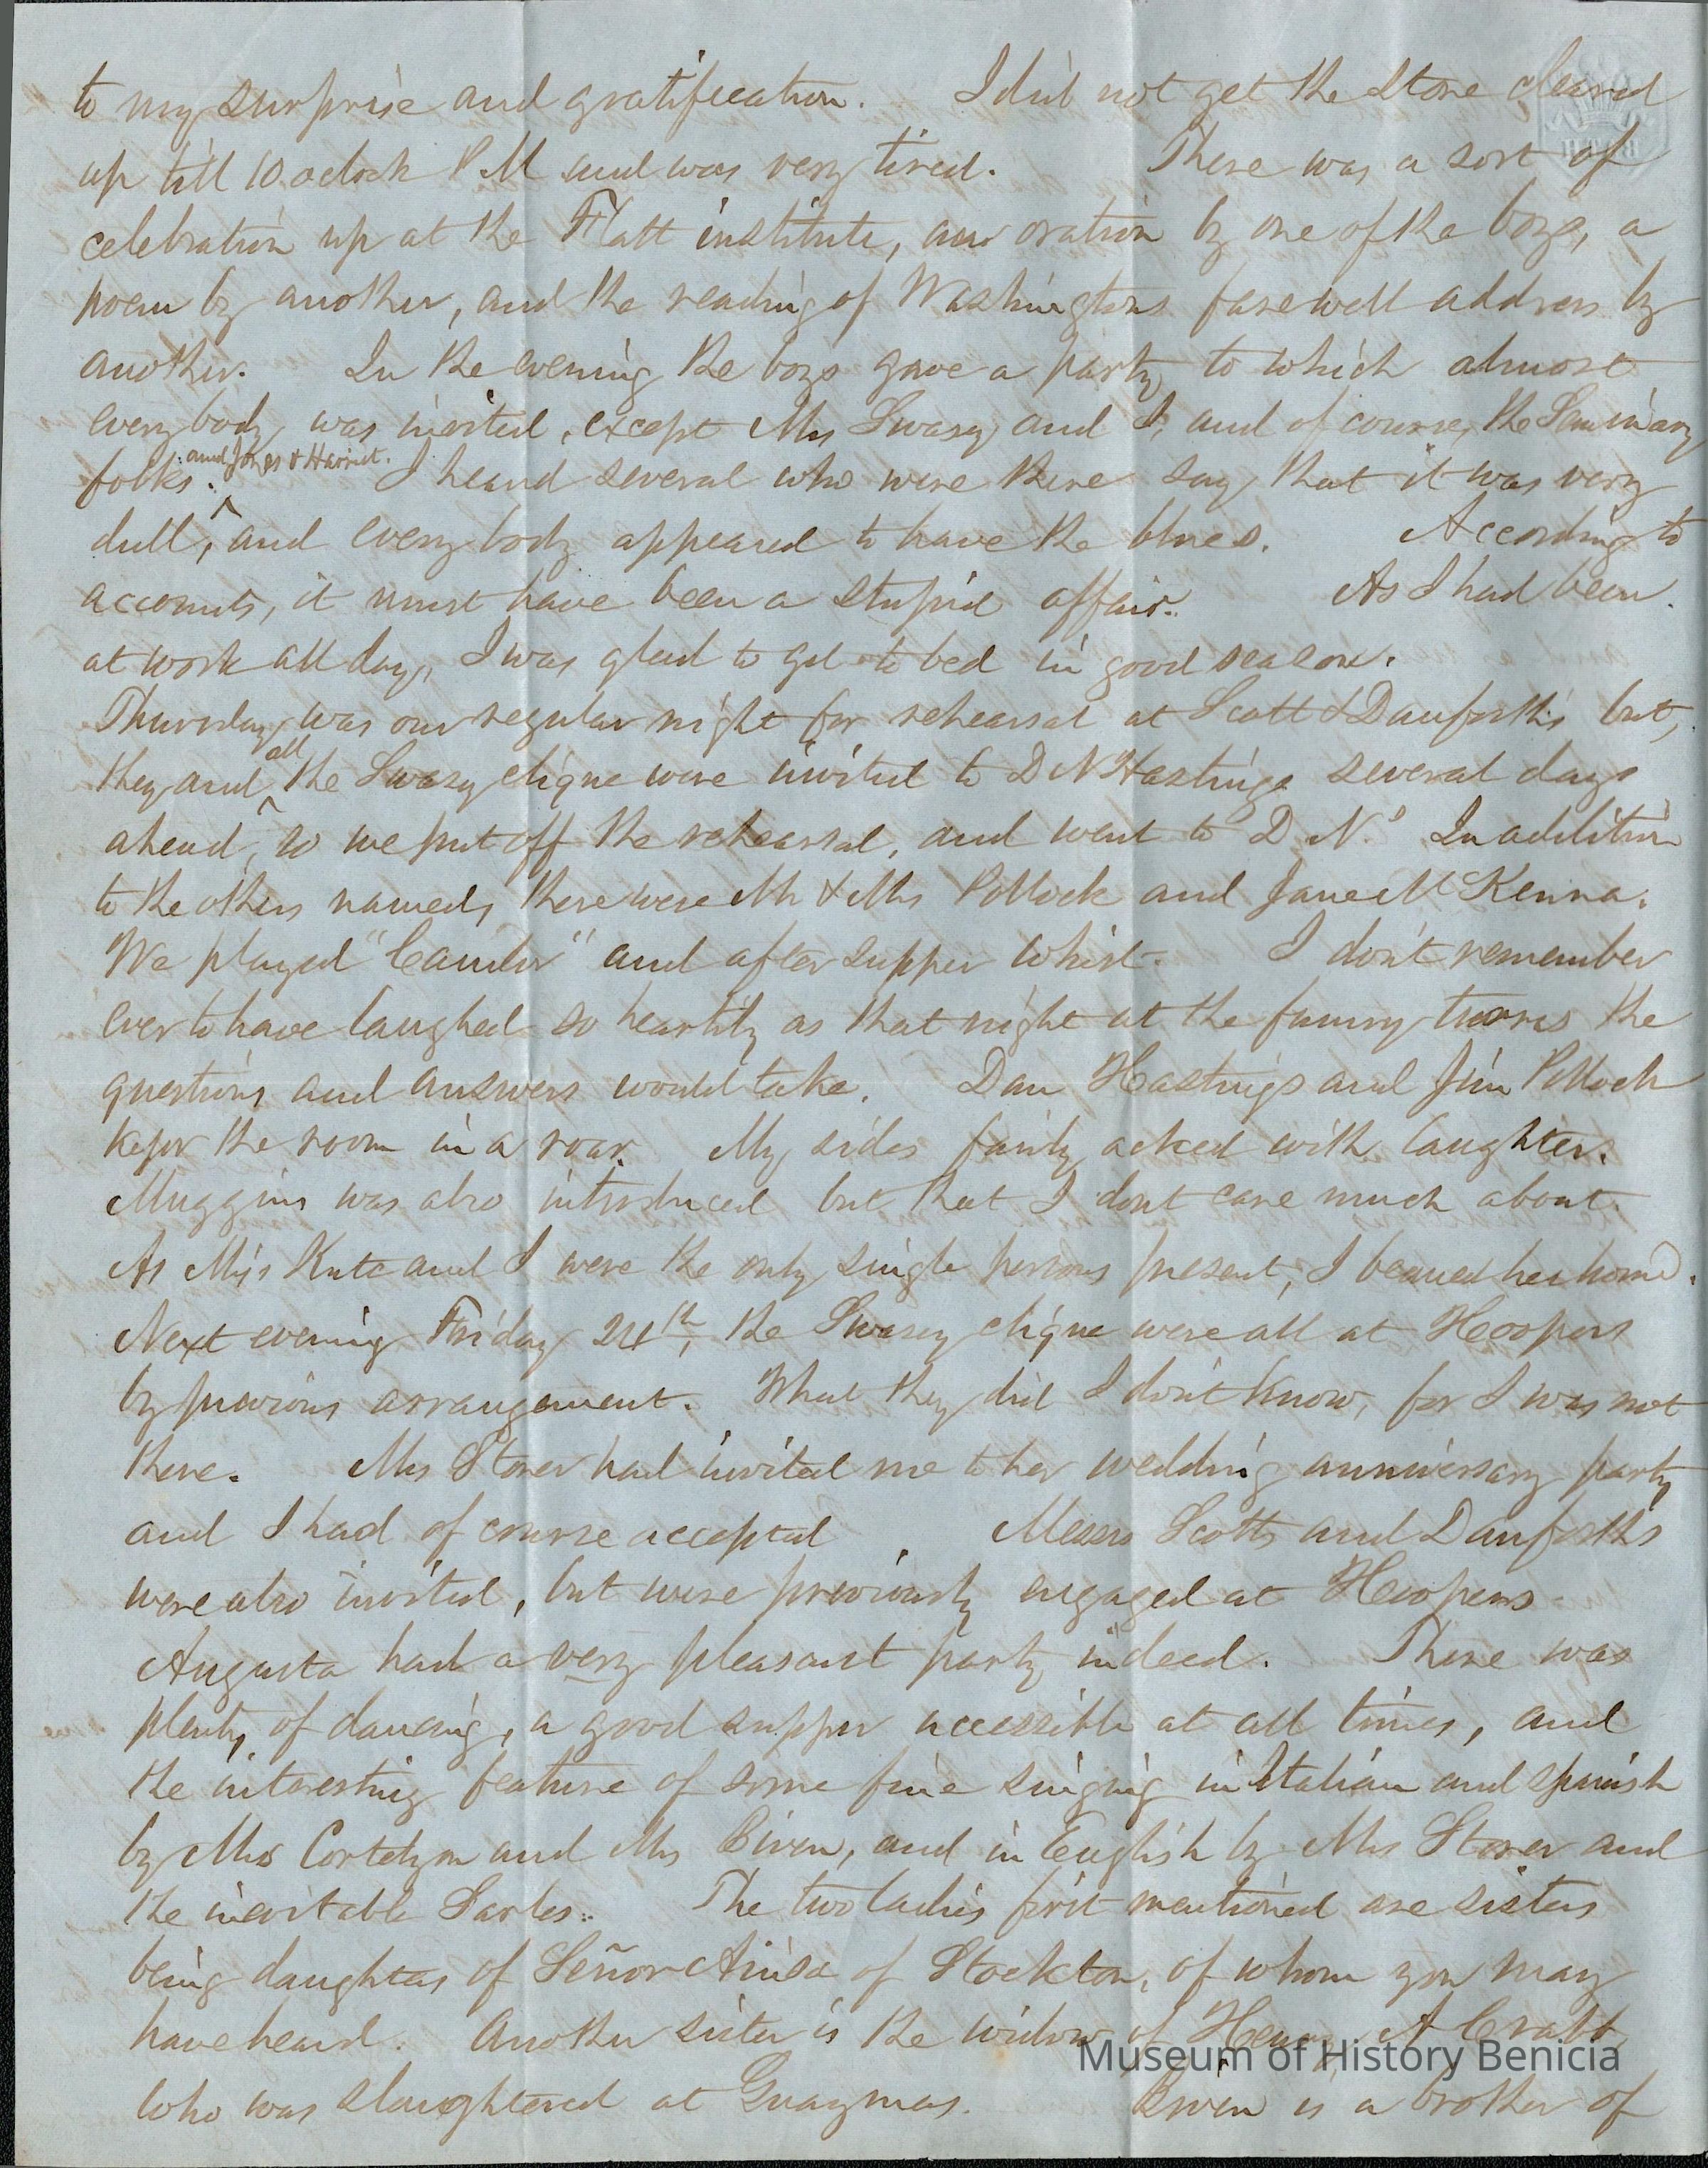 to my surprise and gratification. I did not get the store cleared
up till 10 oclock P M and was very tired. There was a sort of
celebration up at the Flatt institute, an oration by one of the boys, a
poem by another, and the reading of Washingtons farewell address by
another. In the evening the boys gave a party to which almost
every body was invited, except Mrs Swasey and I, and of course, the Seminary
folks. and Jones & Harriet. I heard several who were there say that it was very
dull, and every body appeared to have the blues. According to
accounts, it must have been a stupid affair. As I had been
at work all day, I was glad to get to bed in good season.
Thursday was our regular night for rehearsal at Scott & Danforth's but,
they and all the Swasey clique were invited to D N Hastings several days
ahead, so we put off the rehearsal, and went to D. N.s In addition
to the others named, there were Mr & Mrs Pollock and Jane McKenna.
We played "Cander" and after supper Whist. I don't remember
ever to have laughed so heartily as that night at the funny turns the
questions and answers would take. Dan Hastings and Jim Pollock
kept the room in a roar. My sides fairly acked with laughter.
Muggins was also introduced but that I dont care much about.
As Miss Kate and I were the only single persons present, I beaued her home.
Next evening Friday 24th, the Swasey clique were all at Hoopers
by previous arrangement. What they did I don't know, for I was not
there. Mrs Stoner had invited me to her wedding anniversary party
and I had of course accepted. Messrs Scotts and Danforths
were also invited, but were previously engaged at Hoopers.
Augusta had a very pleasant party indeed. There was
plenty of dancing, a good supper accessible at all times, and
the interesting feature of some fine singing in Italian and spanish
by Mrs Cortelyou and Mrs Biven, and in English by Mrs Stoner and
the inevitable Sarles. The two ladies first mentioned are sisters
being daughters of Señor Ainsa of Stockton, of whom you may
have heard. Another sister is the widow of Henry A Crabb,
who was slaughtered at Guaymas. Biven is a brother of
Museum of History Benicia